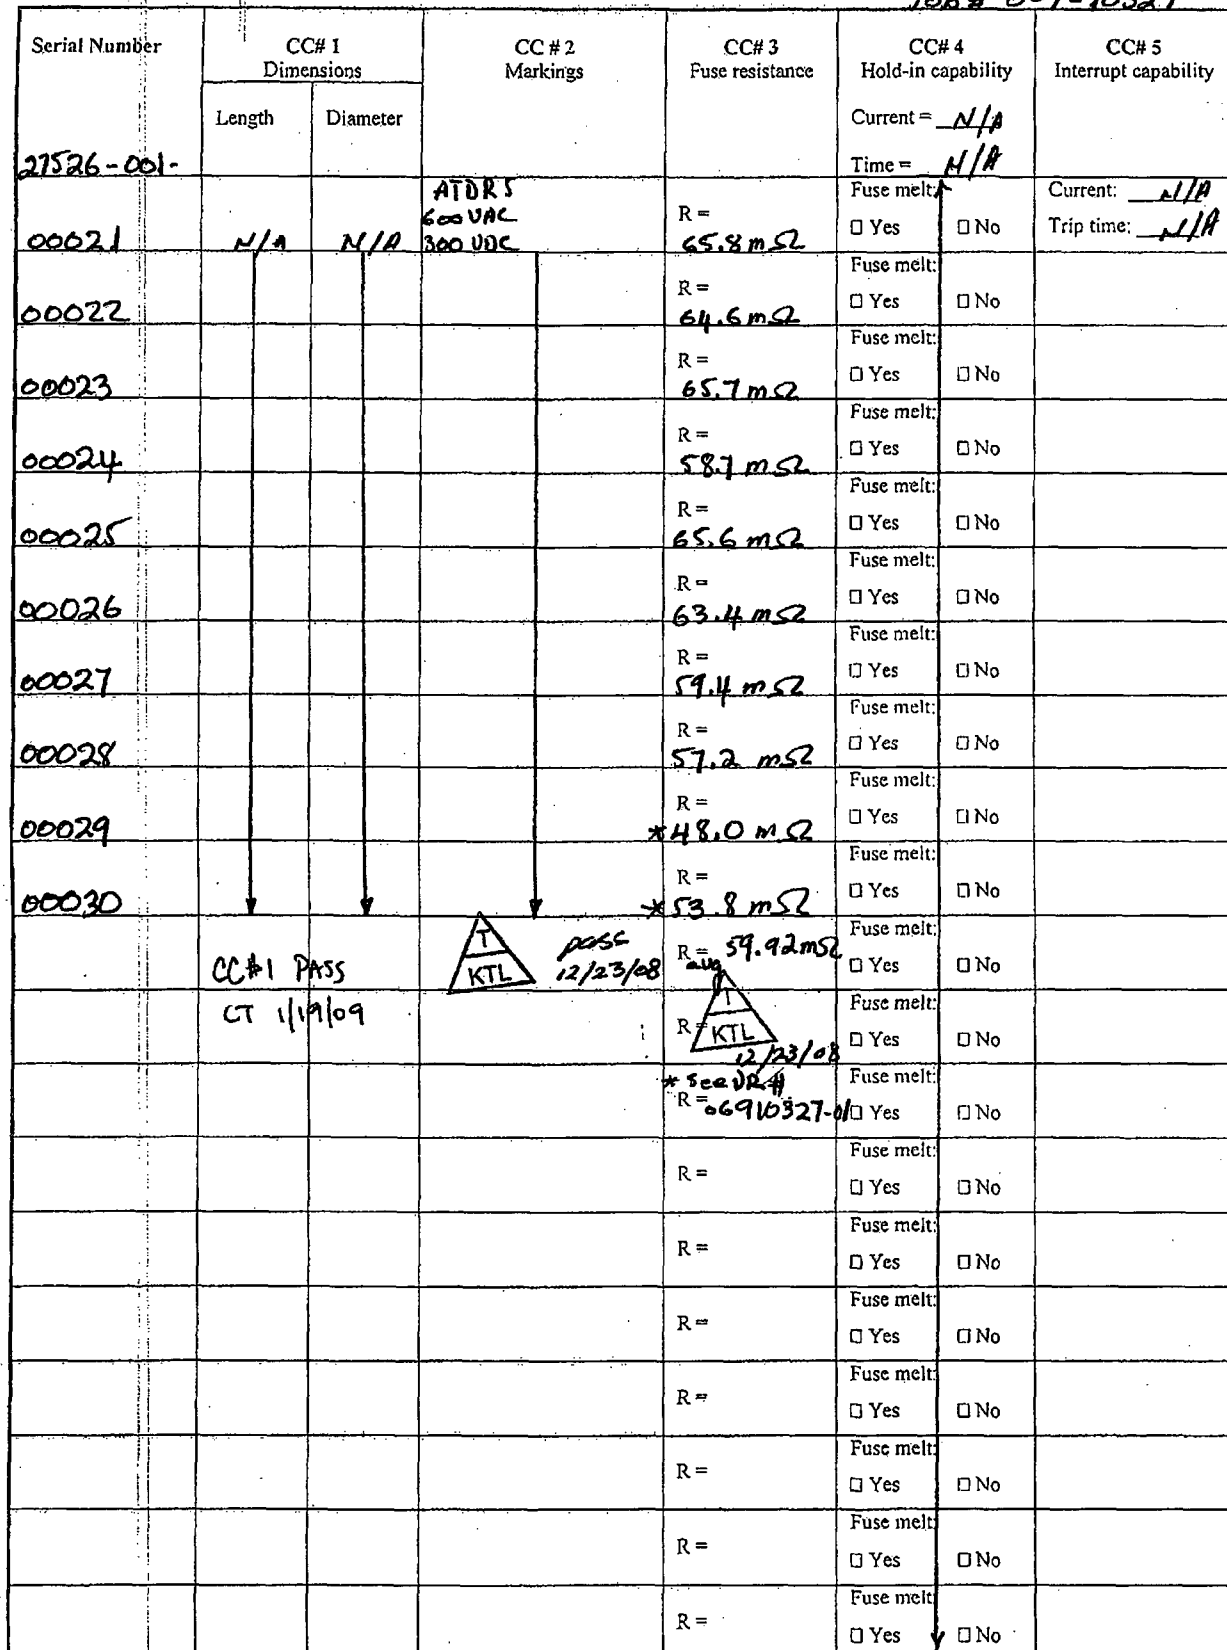 Serial Number
CC# 1
Dimensions
CC # 2
Markings
CC# 3
Fuse resistance
CC# 4
Hold-in capability
CC# 5
Interrupt capability
Length
Diameter
Current = N/A
27526-001-
Time = N/A
ATDR5
600 VAC
300 VDC
00021
N/A
N/A
R =
65.8 mΩ
Fuse melt:
□ Yes □ No
Current: N/A
Trip time: N/A
00022
R =
64.6 mΩ
Fuse melt:
□ Yes □ No
00023
R =
65.7 mΩ
Fuse melt:
□ Yes □ No
00024
R =
58.7 mΩ
Fuse melt:
□ Yes □ No
00025
R =
65.6 mΩ
Fuse melt:
□ Yes □ No
00026
R =
63.4 mΩ
Fuse melt:
□ Yes □ No
00027
R =
59.4 mΩ
Fuse melt:
□ Yes □ No
00028
R =
57.2 mΩ
Fuse melt:
□ Yes □ No
00029
R =
*48.0 mΩ
Fuse melt:
□ Yes □ No
00030
R =
*53.8 mΩ
Fuse melt:
□ Yes □ No
CC#1 PASS
CT 1/19/09
T
KTL
pass
12/23/08
R = 59.92mΩ
avg
Fuse melt:
□ Yes □ No
R =
T
KTL
12/23/08
Fuse melt:
□ Yes □ No
* See DR#
R = 06910327-01
Fuse melt:
□ Yes □ No
R =
Fuse melt:
□ Yes □ No
R =
Fuse melt:
□ Yes □ No
R =
Fuse melt:
□ Yes □ No
R =
Fuse melt:
□ Yes □ No
R =
Fuse melt:
□ Yes □ No
R =
Fuse melt:
□ Yes □ No
R =
Fuse melt:
□ Yes □ No